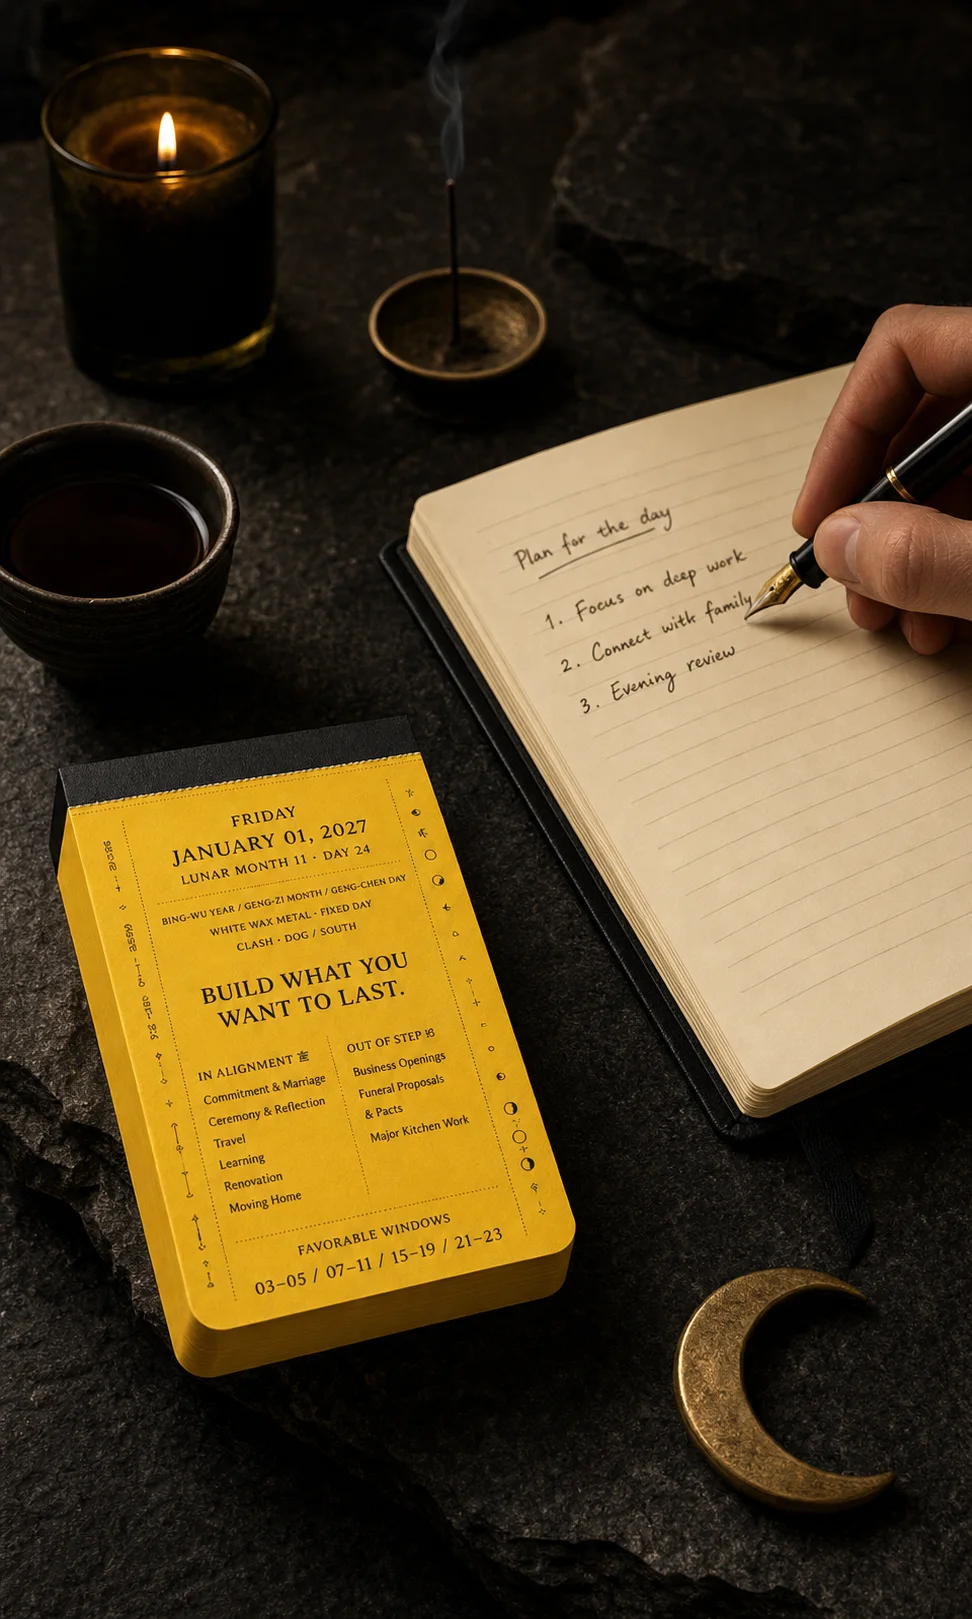 Plan for the day
1. Focus on deep work
2. Connect with family
3. Evening review
FRIDAY
JANUARY 01, 2027
LUNAR MONTH 11 · DAY 24
BING-WU YEAR / GENG-ZI MONTH / GENG-CHEN DAY
WHITE WAX METAL · FIXED DAY
CLASH · DOG / SOUTH
BUILD WHAT YOU
WANT TO LAST.
IN ALIGNMENT
Commitment & Marriage
Ceremony & Reflection
Travel
Learning
Renovation
Moving Home
OUT OF STEP
Business Openings
Funeral Proposals
& Pacts
Major Kitchen Work
FAVORABLE WINDOWS
03–05 / 07–11 / 15–19 / 21–23